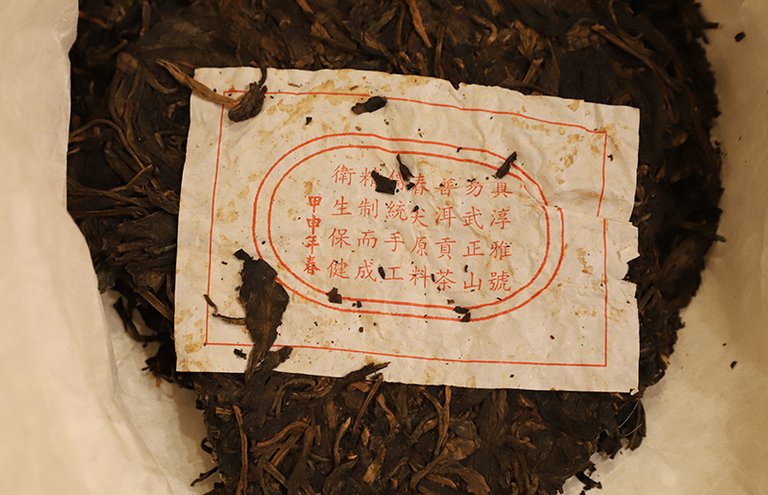 真淳雅號
易武正山
普洱貢茶
春尖原料
傳統手工
精制而成
衛生保健
甲申年春